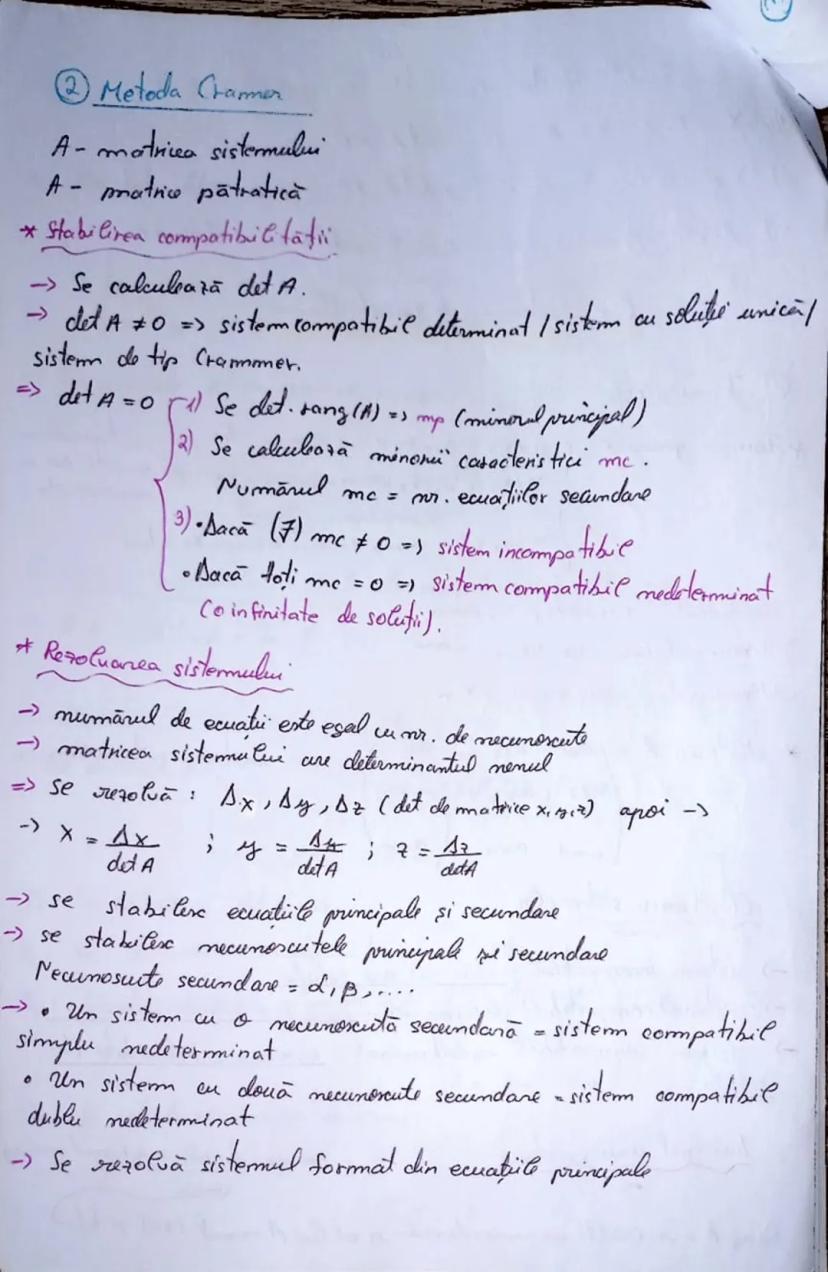 ② Metoda Cramer
A - matricea sistemului
A - matrice pătratică
* Stabilirea compatibilității
-> Se calculează det A.
-> det A ≠ 0 => sistem compatibil determinat / sistem cu soluție unică /
sistem de tip Crammer.
=> det A = 0
1) Se det. rang(A) => mp (minorul principal)
2) Se calculează minorii caracteristici mc.
Numărul mc = nr. ecuațiilor secundare
3) • Dacă (∃) mc ≠ 0 => sistem incompatibil
• Dacă toți mc = 0 => sistem compatibil nedeterminat
(o infinitate de soluții).
* Rezolvarea sistemului
-> numărul de ecuații este egal cu nr. de necunoscute
-> matricea sistemului are determinantul nenul
=> se rezolvă : Δx, Δy, Δz (det de matrice x, y, z) apoi ->
-> x = Δx / det A ; y = Δy / det A ; z = Δz / det A
-> se stabilesc ecuațiile principale și secundare
-> se stabilesc necunoscutele principale și secundare
Necunoscute secundare = α, β, ....
-> • Un sistem cu o necunoscută secundară = sistem compatibil
simplu nedeterminat
• Un sistem cu două necunoscute secundare = sistem compatibil
dublu nedeterminat
-> Se rezolvă sistemul format din ecuațiile principale